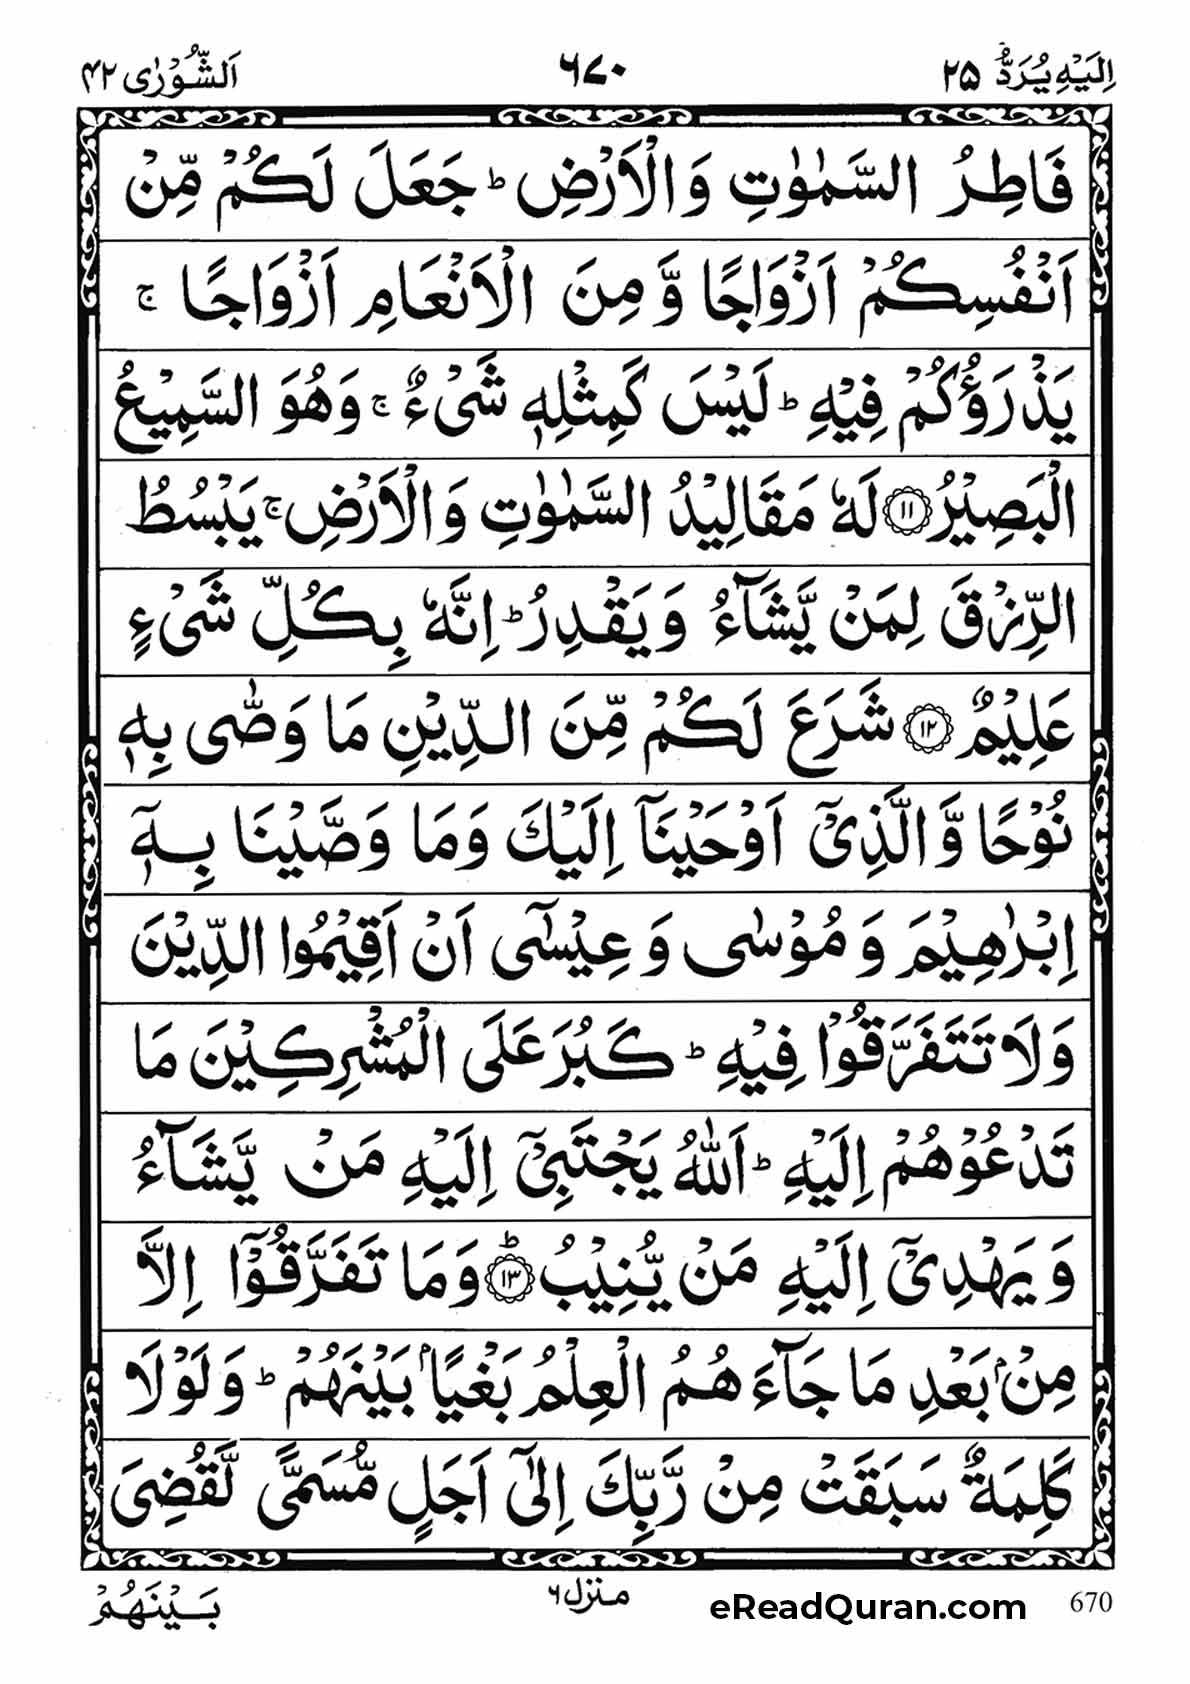 اِلَيْهِ يُرَدُّ ۲۵ ۶۷۰ اَلشُّوْرٰى ۴۲
فَاطِرُ السَّمٰوٰتِ وَالْاَرْضِ ؕ جَعَلَ لَكُمْ مِّنْ
اَنْفُسِكُمْ اَزْوَاجًا وَّ مِنَ الْاَنْعَامِ اَزْوَاجًا ۚ
يَذْرَؤُكُمْ فِيْهِ ؕ لَيْسَ كَمِثْلِهٖ شَىْءٌ ۚ وَهُوَ السَّمِيْعُ
الْبَصِيْرُ ۱۱ لَهٗ مَقَالِيْدُ السَّمٰوٰتِ وَالْاَرْضِ ۚ يَبْسُطُ
الرِّزْقَ لِمَنْ يَّشَآءُ وَيَقْدِرُ ؕ اِنَّهٗ بِكُلِّ شَىْءٍ
عَلِيْمٌ ۱۲ شَرَعَ لَكُمْ مِّنَ الدِّيْنِ مَا وَصّٰى بِهٖ
نُوْحًا وَّالَّذِىْۤ اَوْحَيْنَاۤ اِلَيْكَ وَمَا وَصَّيْنَا بِهٖۤ
اِبْرٰهِيْمَ وَ مُوْسٰى وَ عِيْسٰٓى اَنْ اَقِيْمُوا الدِّيْنَ
وَلَا تَتَفَرَّقُوْا فِيْهِ ؕ كَبُرَ عَلَى الْمُشْرِكِيْنَ مَا
تَدْعُوْهُمْ اِلَيْهِ ؕ اَللّٰهُ يَجْتَبِىْۤ اِلَيْهِ مَنْ يَّشَآءُ
وَ يَهْدِىْۤ اِلَيْهِ مَنْ يُّنِيْبُ ؕ ۱۳ وَمَا تَفَرَّقُوْۤا اِلَّا
مِنْۢ بَعْدِ مَا جَآءَ هُمُ الْعِلْمُ بَغْيًاۢ بَيْنَهُمْ ؕ وَلَوْلَا
كَلِمَةٌ سَبَقَتْ مِنْ رَّبِّكَ اِلٰٓى اَجَلٍ مُّسَمًّى لَّقُضِىَ
بَيْنَهُمْ منزل ۶ eReadQuran.com 670